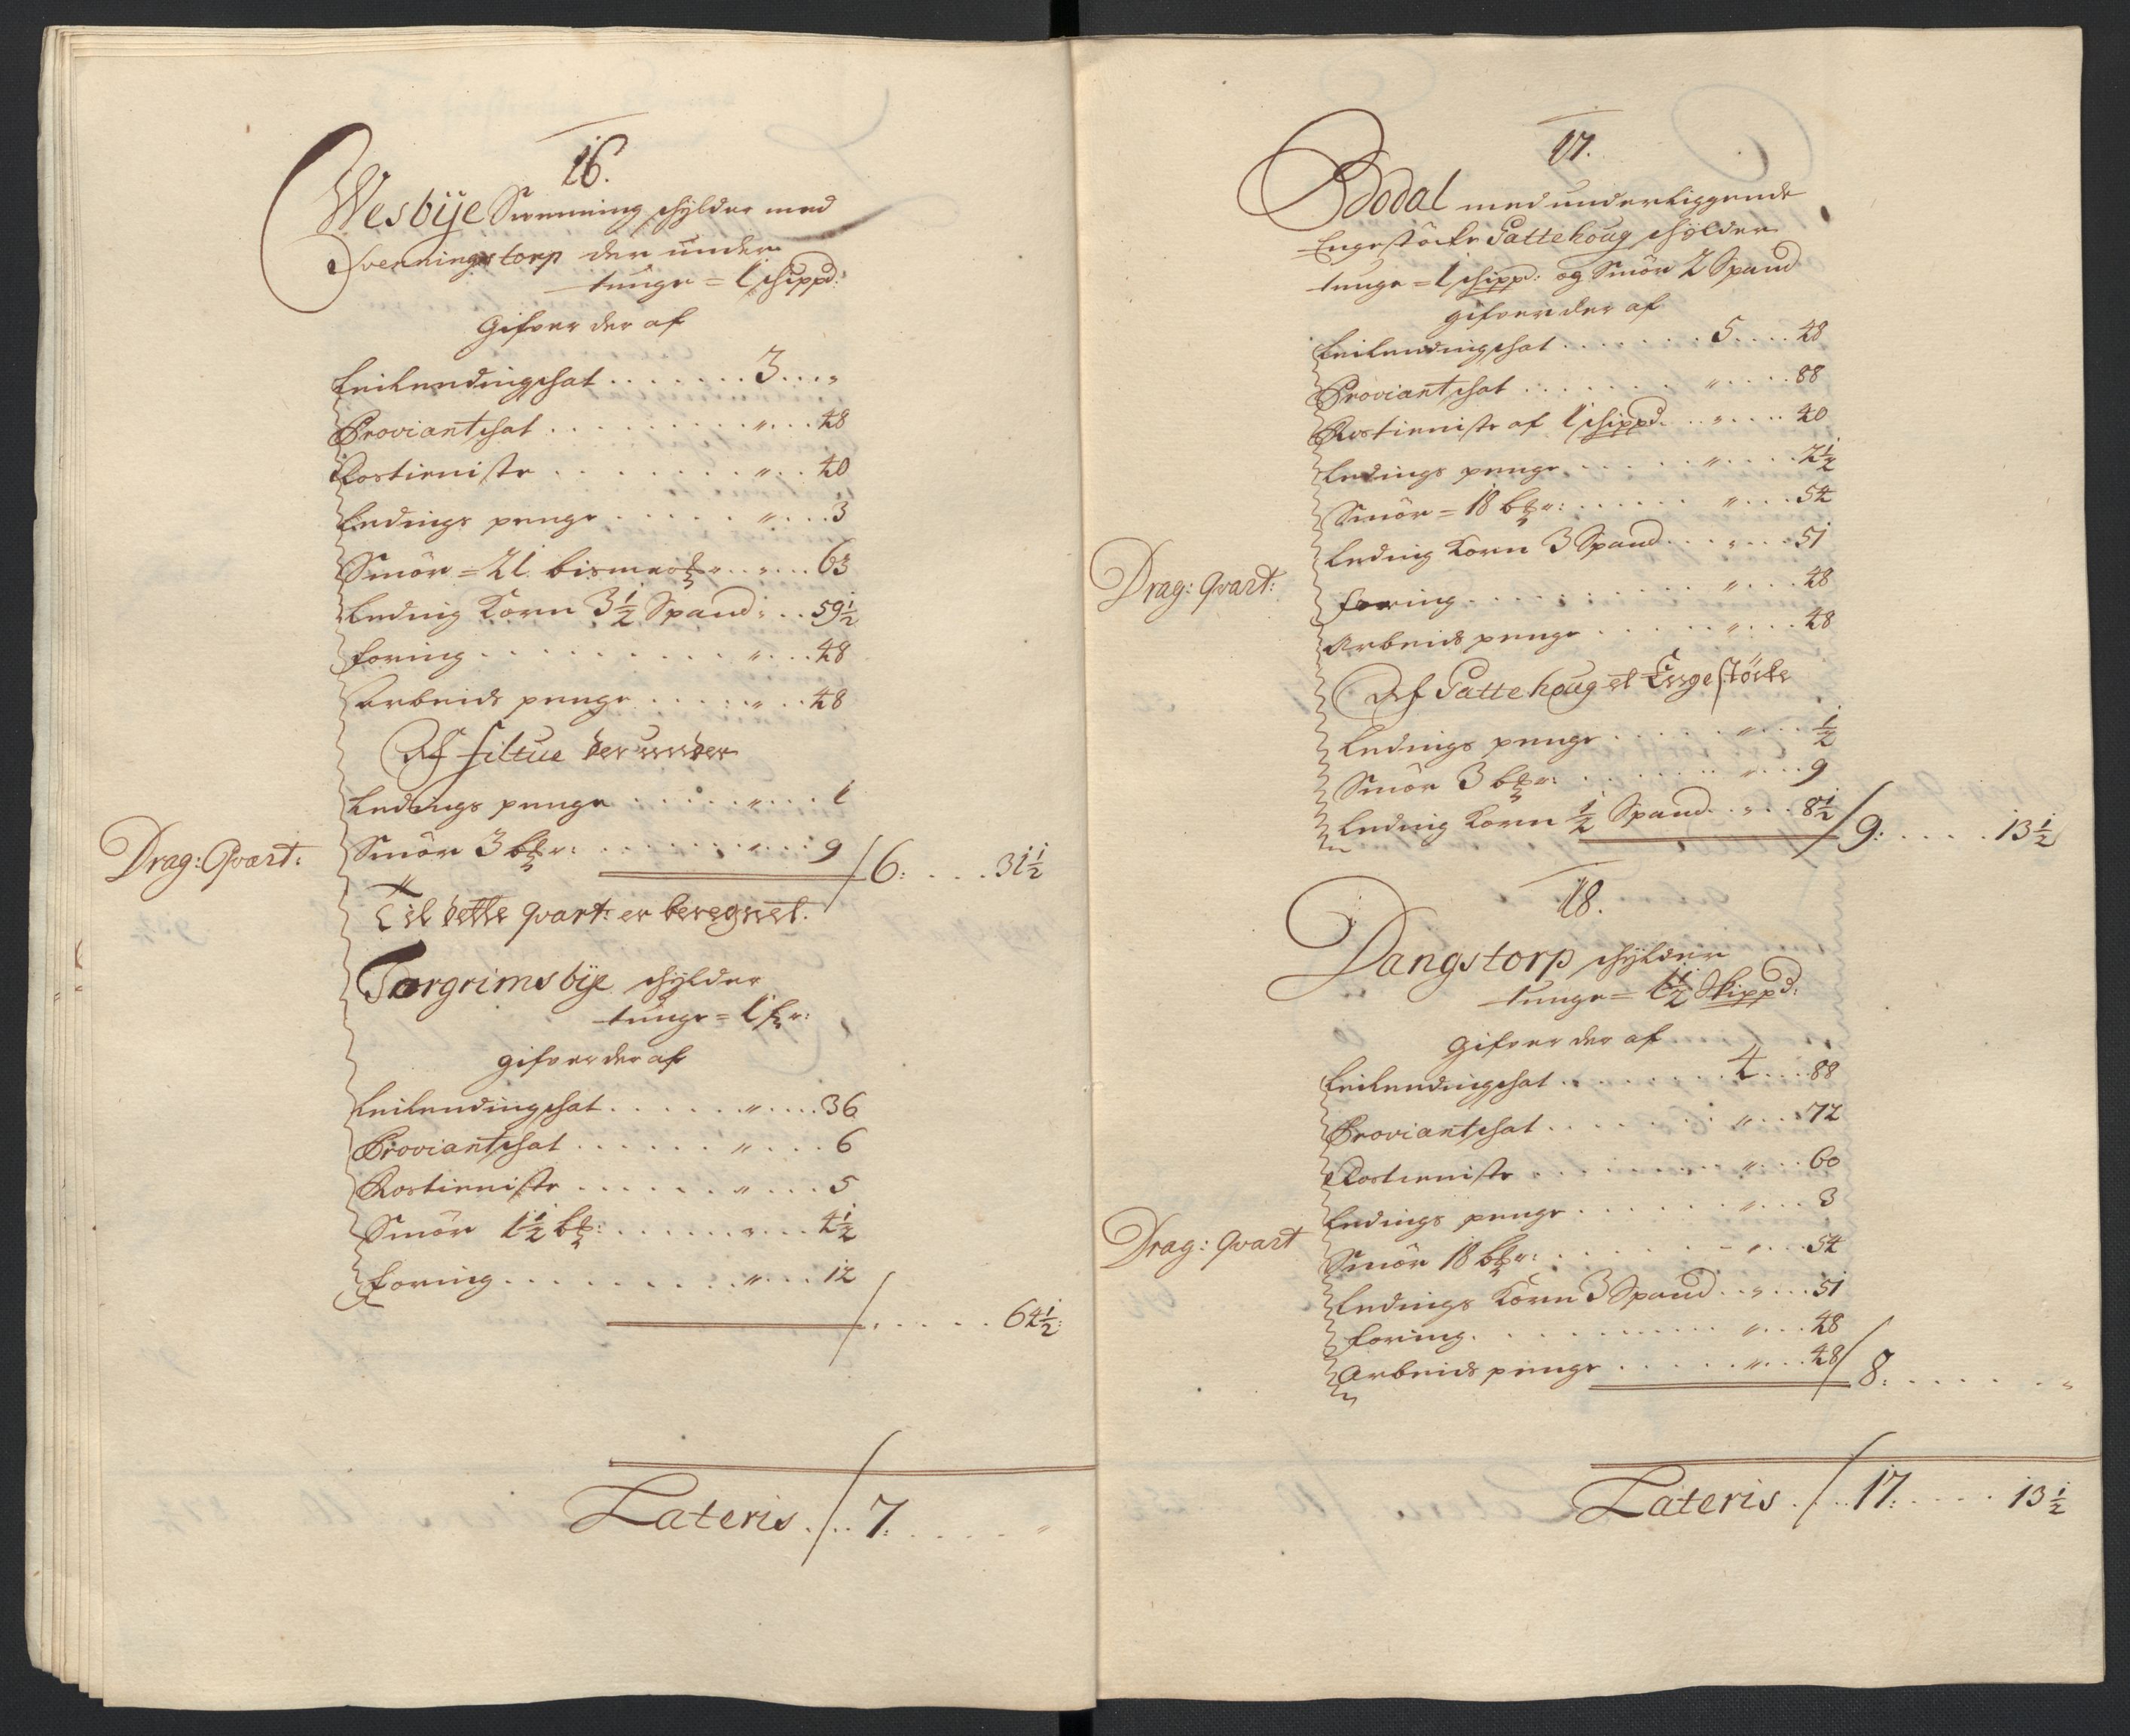 16.
Wesbÿe Svenning schÿlder med
Svenningstorp der under
tunge = 1 schippd:
Gifver der af
Leilendingschat . . . . . . . 3 . . . "
Proviantschat . . . . . . . . " . . . 48
Rostieniste . . . . . . . " . . 40
Ledings penge . . . . . " . . . 3
Smör = 21. bismer℔r . . " . . . 63
Leding Korn 3½ Spand " . . 59½
foring . . . . . . . . . " . . . 48
Arbeids penge . . . . . " . . 48
Af Siltue der under
Ledings penge . . . . . " . . . 1
Drag: Qvart: Smör 3 b℔r: . . . . . . . " . . . 9 / 6: . . . . 31½
Til dette qvart: er beregnet.
Torgrimsbÿe schÿlder
tunge = 1 sr:
gifver der af
Leilendingschat . . . . . . " . . . . 36
Proviantschat . . . . . . " . . . . 6
Rostieniste . . . . . . " . . . . 5
Smör 1½ b℔: . . . . . . " . . . 4½
foring . . . . . . . . . " . . . 12
/ " . . . . . 64½:
Lateris . / . . 7: . . . . . "
17.
Bodal med underliggende
Engestöcke Pattehoug schÿlder
tunge = 1 schippd: og Smör 2 Spand
gifver der af
Leilendingschat . . . . . . . 5 . . . . 48
Proviantschat . . . . . . . . " . . . . 88
Rostieniste af 1 schippd. . . " . . . . 40
Ledings penge . . . . . . " . . . . 2½
Smör = 18 b℔r: . . . . . . " . . . 54
Leding Korn 3 Spand . . . " . . . 51
Drag: qvart: foring . . . . . . . . . . " . . . 48
Arbeids penge . . . . . . " . . . 48
Af Pattehoug et Engestöcke
Ledings penge . . . . . " . . . ½
Smör 3 b℔r: . . . . . . . " . . . 9
Leding Korn ½ Spand . . " . . 8½ / 9: . . . . . 13½
18.
Dangstorp schÿlder
tunge = 1½ Skippd:
gifver der af
Leilendingschat . . . . . . . . 4 . . . . 88
Proviantschat . . . . . . . . " . . . 72
Rostieniste . . . . . . . . . " . . . 60
Ledings penge . . . . . . . " . . . 3
Drag: qvart Smör 18 b℔r: . . . . . . . " . . . 54
Ledings Korn 3 Spand . . " . . . 51
foring . . . . . . . . . . " . . . 48
Arbeids penge . . . . . . " . . . 48 / 8: . . . . . . "
Lateris . / . . 17: . . . . . 13½